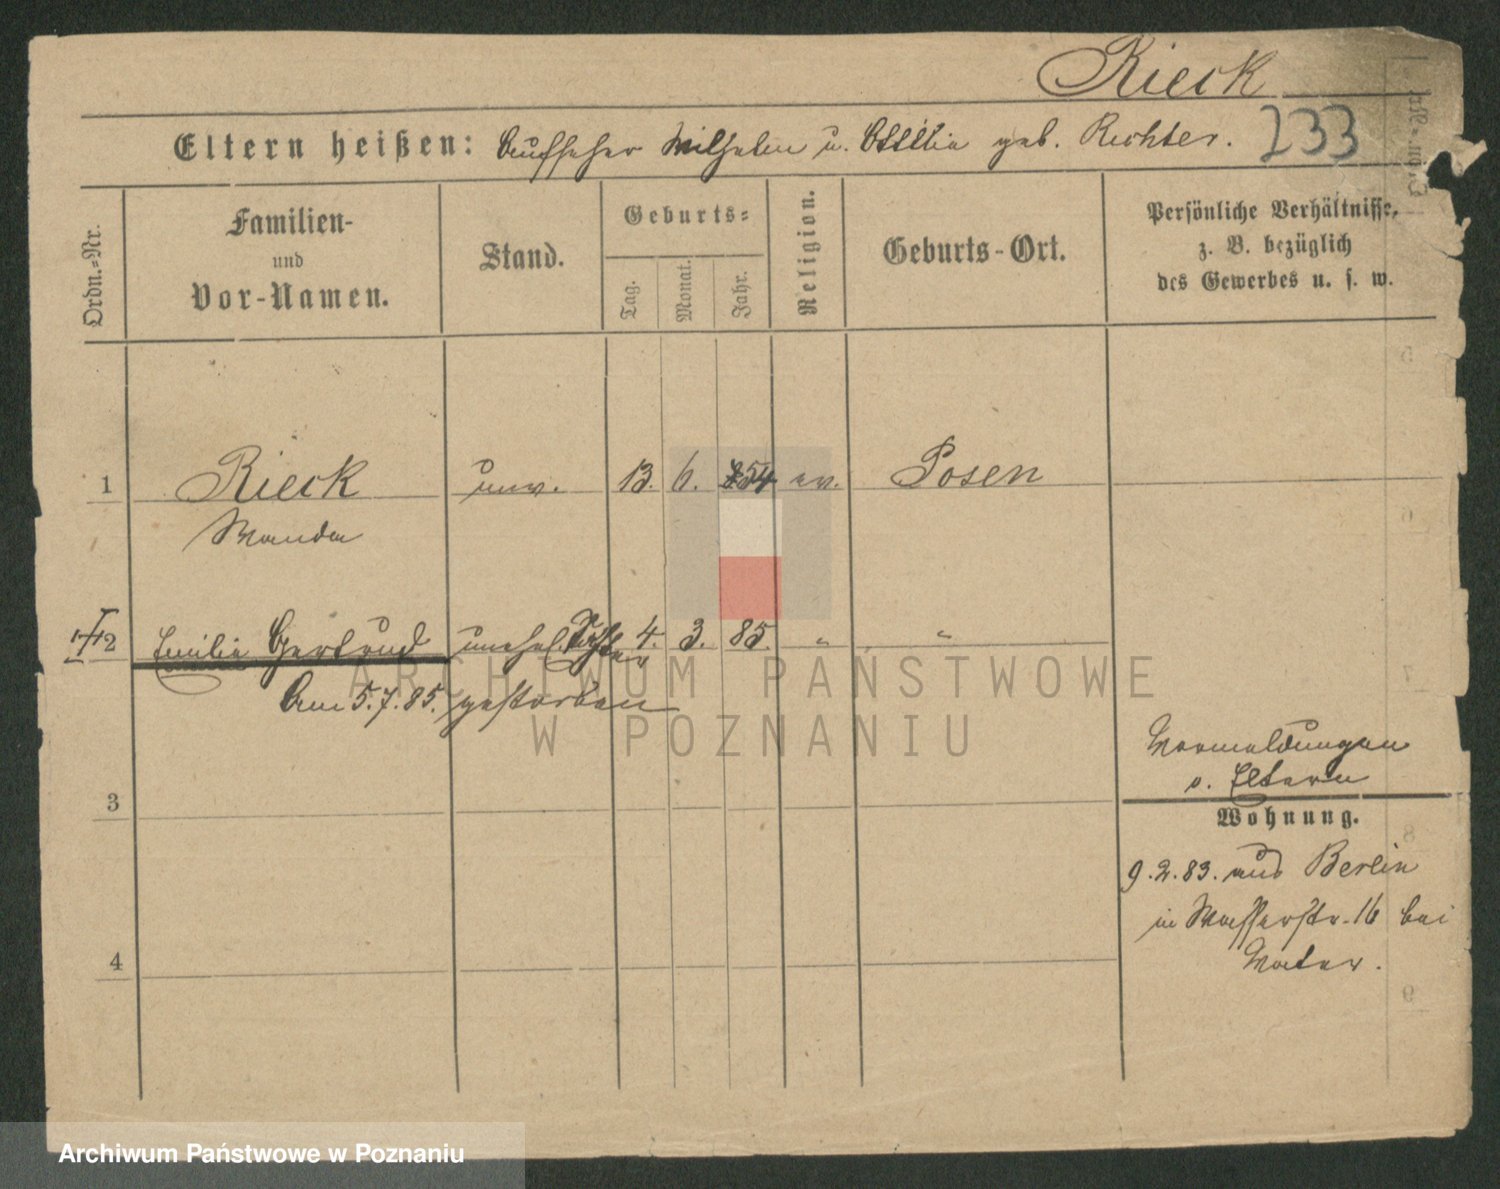 Rieck
Eltern heißen: Aufseher Wilhelm u. Ottilie geb. Richter. 233
Ordn.-Nr.
Familien-
und
Vor-Namen.
Stand.
Geburts-
Tag.
Monat.
Jahr.
Religion.
Geburts-Ort.
Persönliche Verhältnisse,
z. B. bezüglich
des Gewerbes u. s. w.
1 Rieck unv. 13. 6. 854 ev. Posen
Wanda
2 Emilie Gertrud unehel. Tochter 4. 3. 85. " "
Am 5.7.85. gestorben
ARCHIWUM PAŃSTWOWE
W POZNANIU
Vormeldungen
s. Eltern
3
Wohnung.
9.2.83. aus Berlin
in Wasserstr. 16 bei
Vater.
4
Archiwum Państwowe w Poznaniu